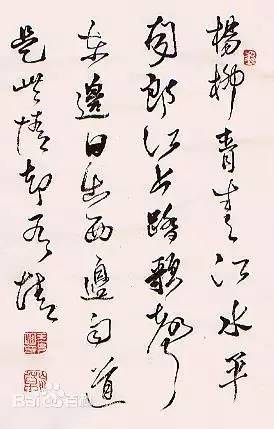 楊柳青青江水平
聞郎江上踏歌聲
東邊日出西邊雨道
是無情却有情
Bai百科